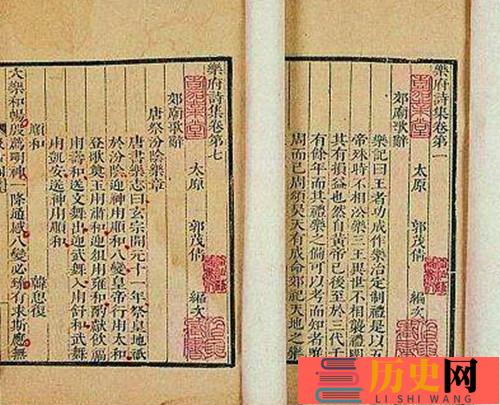 樂府詩集卷第一
太原 郭茂倩 編次
郊廟歌辭
樂記曰王者功成作樂治定制禮是以五
帝殊時不相沿樂三王異世不相襲禮明
其有損益也然自黃帝已後至於三代千
有餘年而其禮樂之備可以考而知者唯
周而已周頌昊天有成命郊祀天地之樂
樂府詩集卷第七
太原 郭茂倩 編次
郊廟歌辭
唐祭汾陰樂章
唐書樂志曰玄宗開元十一年祭皇地祇
於汾陰迎神用順和八變皇帝行用太和
登歌奠玉用肅和迎俎用雍和酌獻飲
文舞出迎武舞入用舒和武舞
用凱安送神用順和
順和 韓思復
大樂和暢殷薦明神一降通感八變必臻有求斯應
历史网
LI SHI WANG